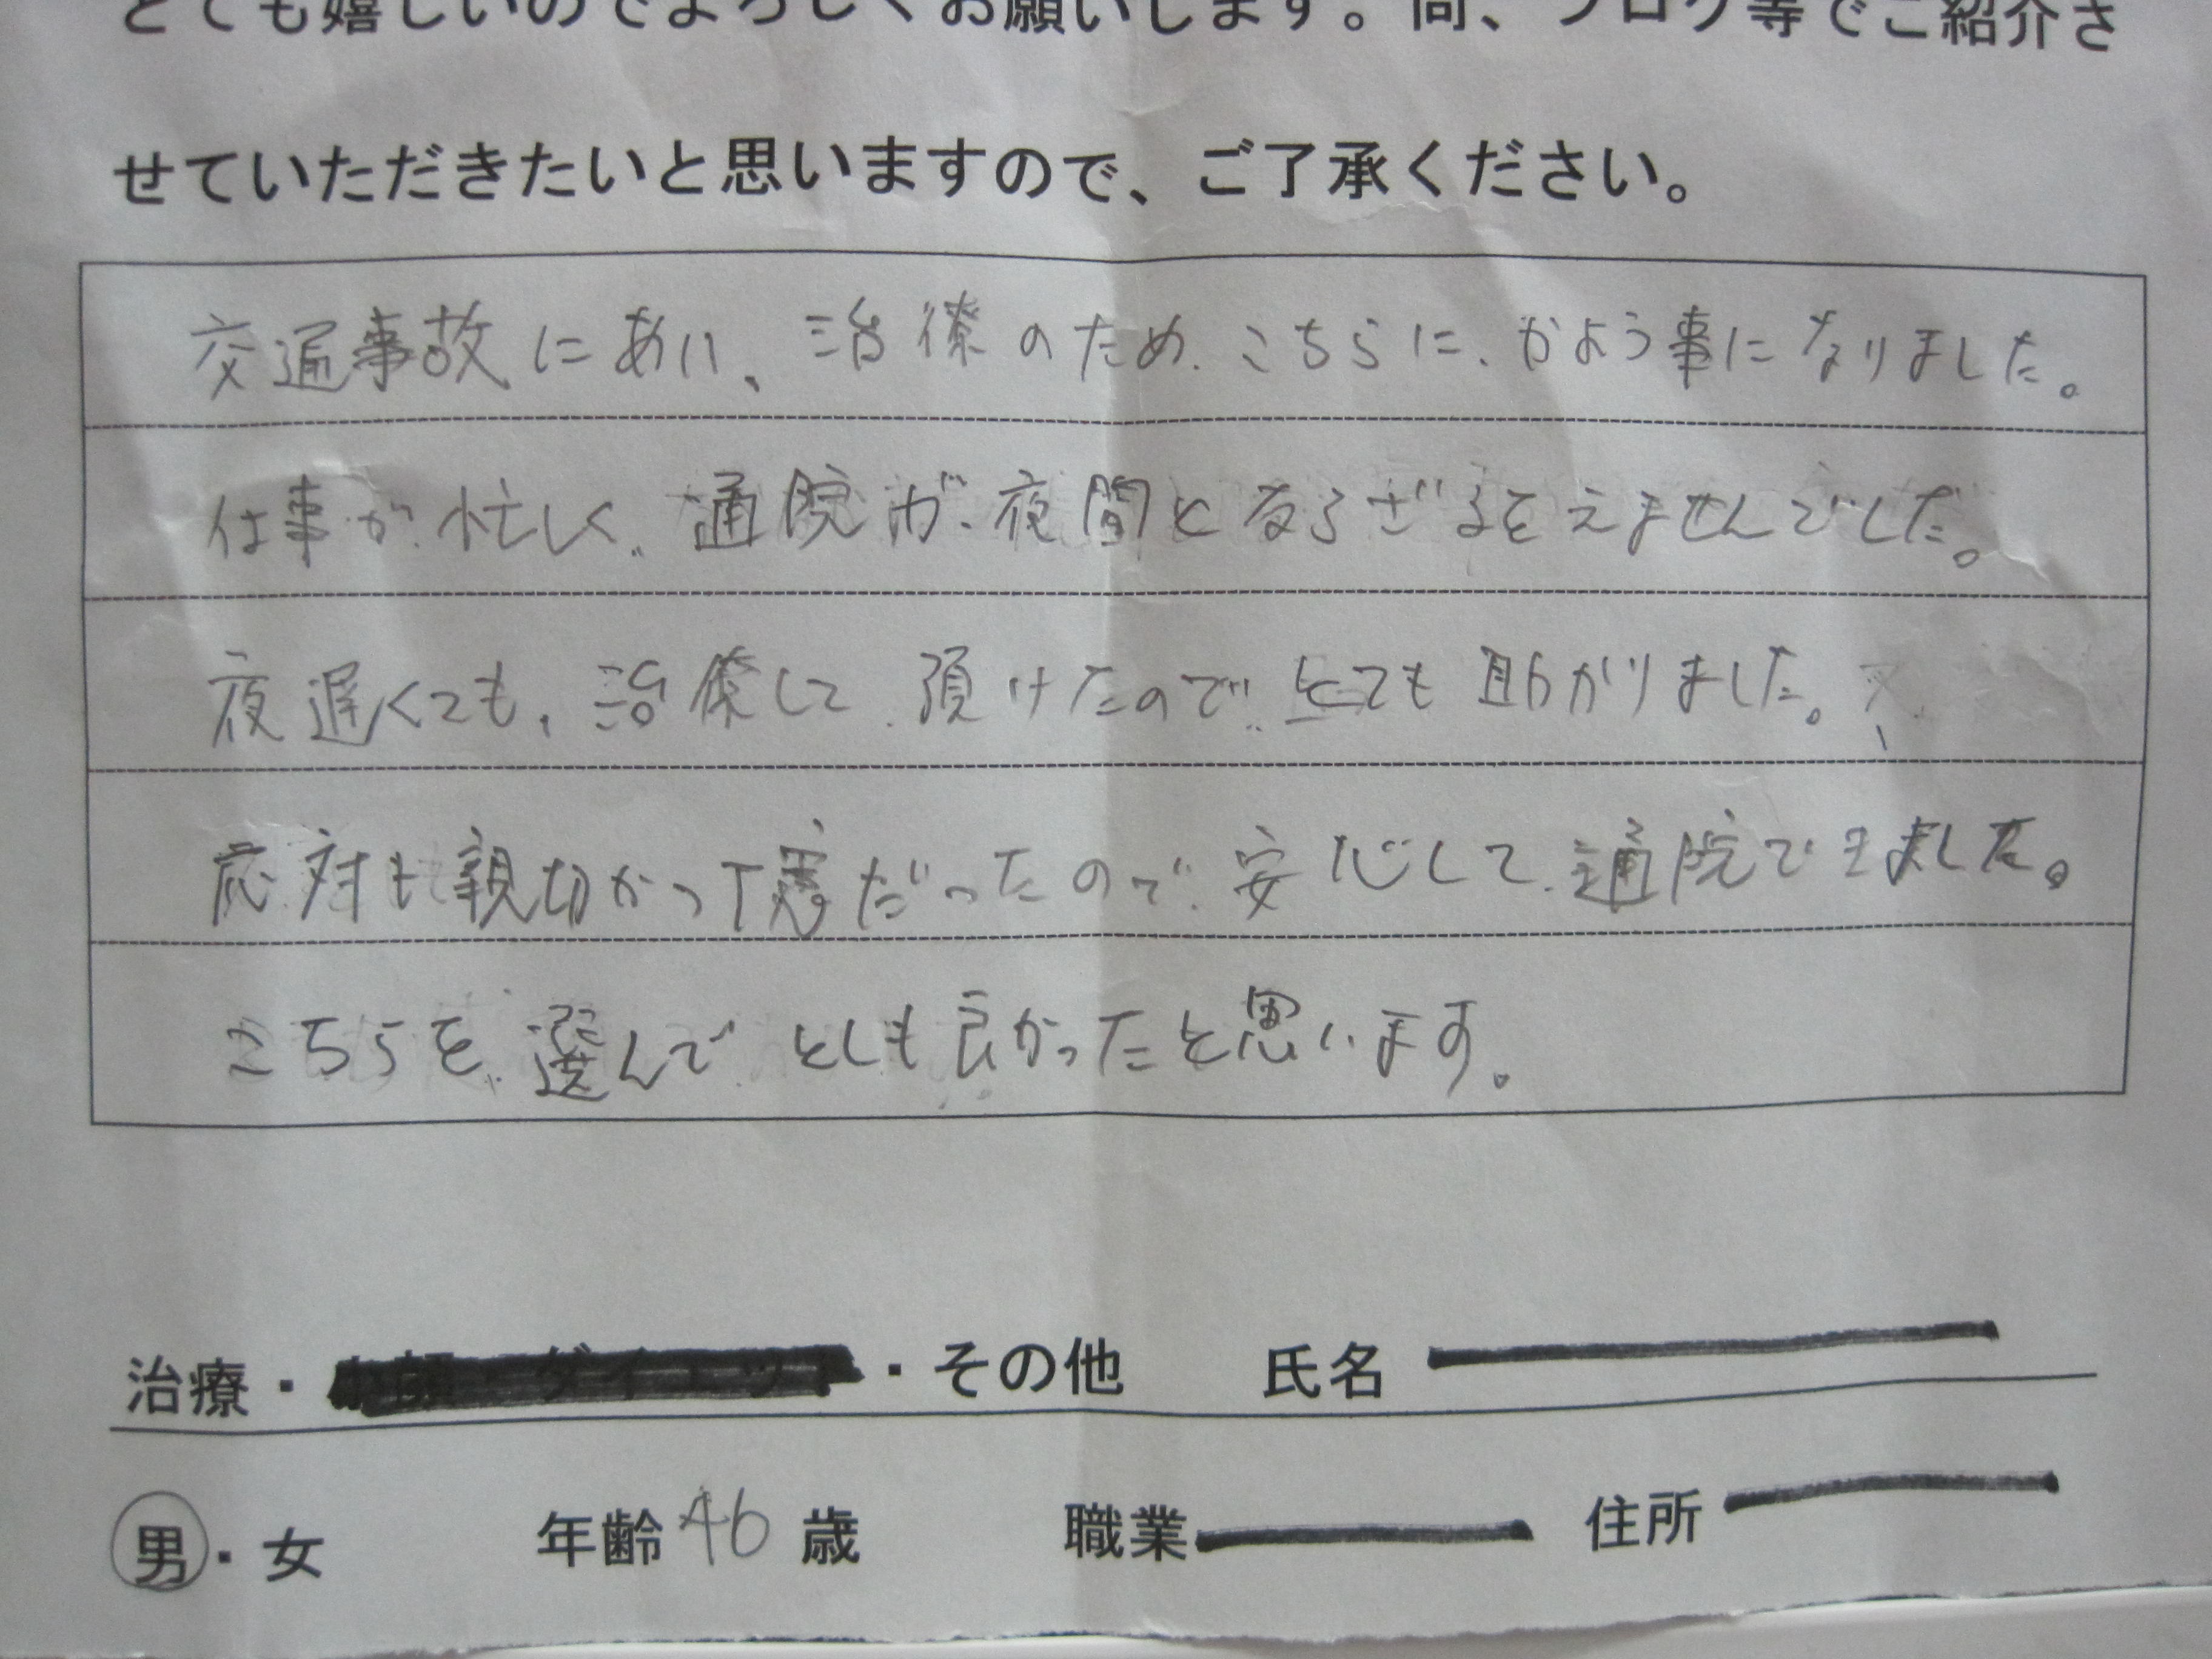 とても嬉しいのでよろしくお願いします。尚、ブログ等でご紹介さ
せていただきたいと思いますので、ご了承ください。
交通事故にあい、治療のため、こちらに、かよう事になりました。
仕事が忙しく、通院が、夜間とならざるをえませんでした。
夜遅くても、治療して、頂けたので、とても助かりました。又、
応対も親切かつ丁寧だったので、安心して、通院できました。
こちらを、選んで、とても良かったと思います。
治療・小顔・ダイエット・その他 氏名
男・女 年齢 46 歳 職業 住所